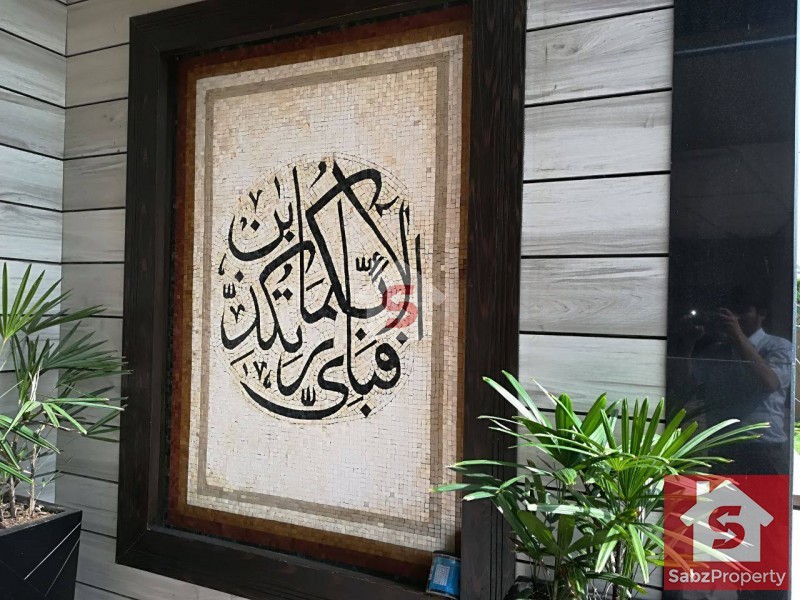 فَبِأَيِّ آلَاءِ رَبِّكُمَا تُكَذِّبَانِ
S
S
SabzProperty